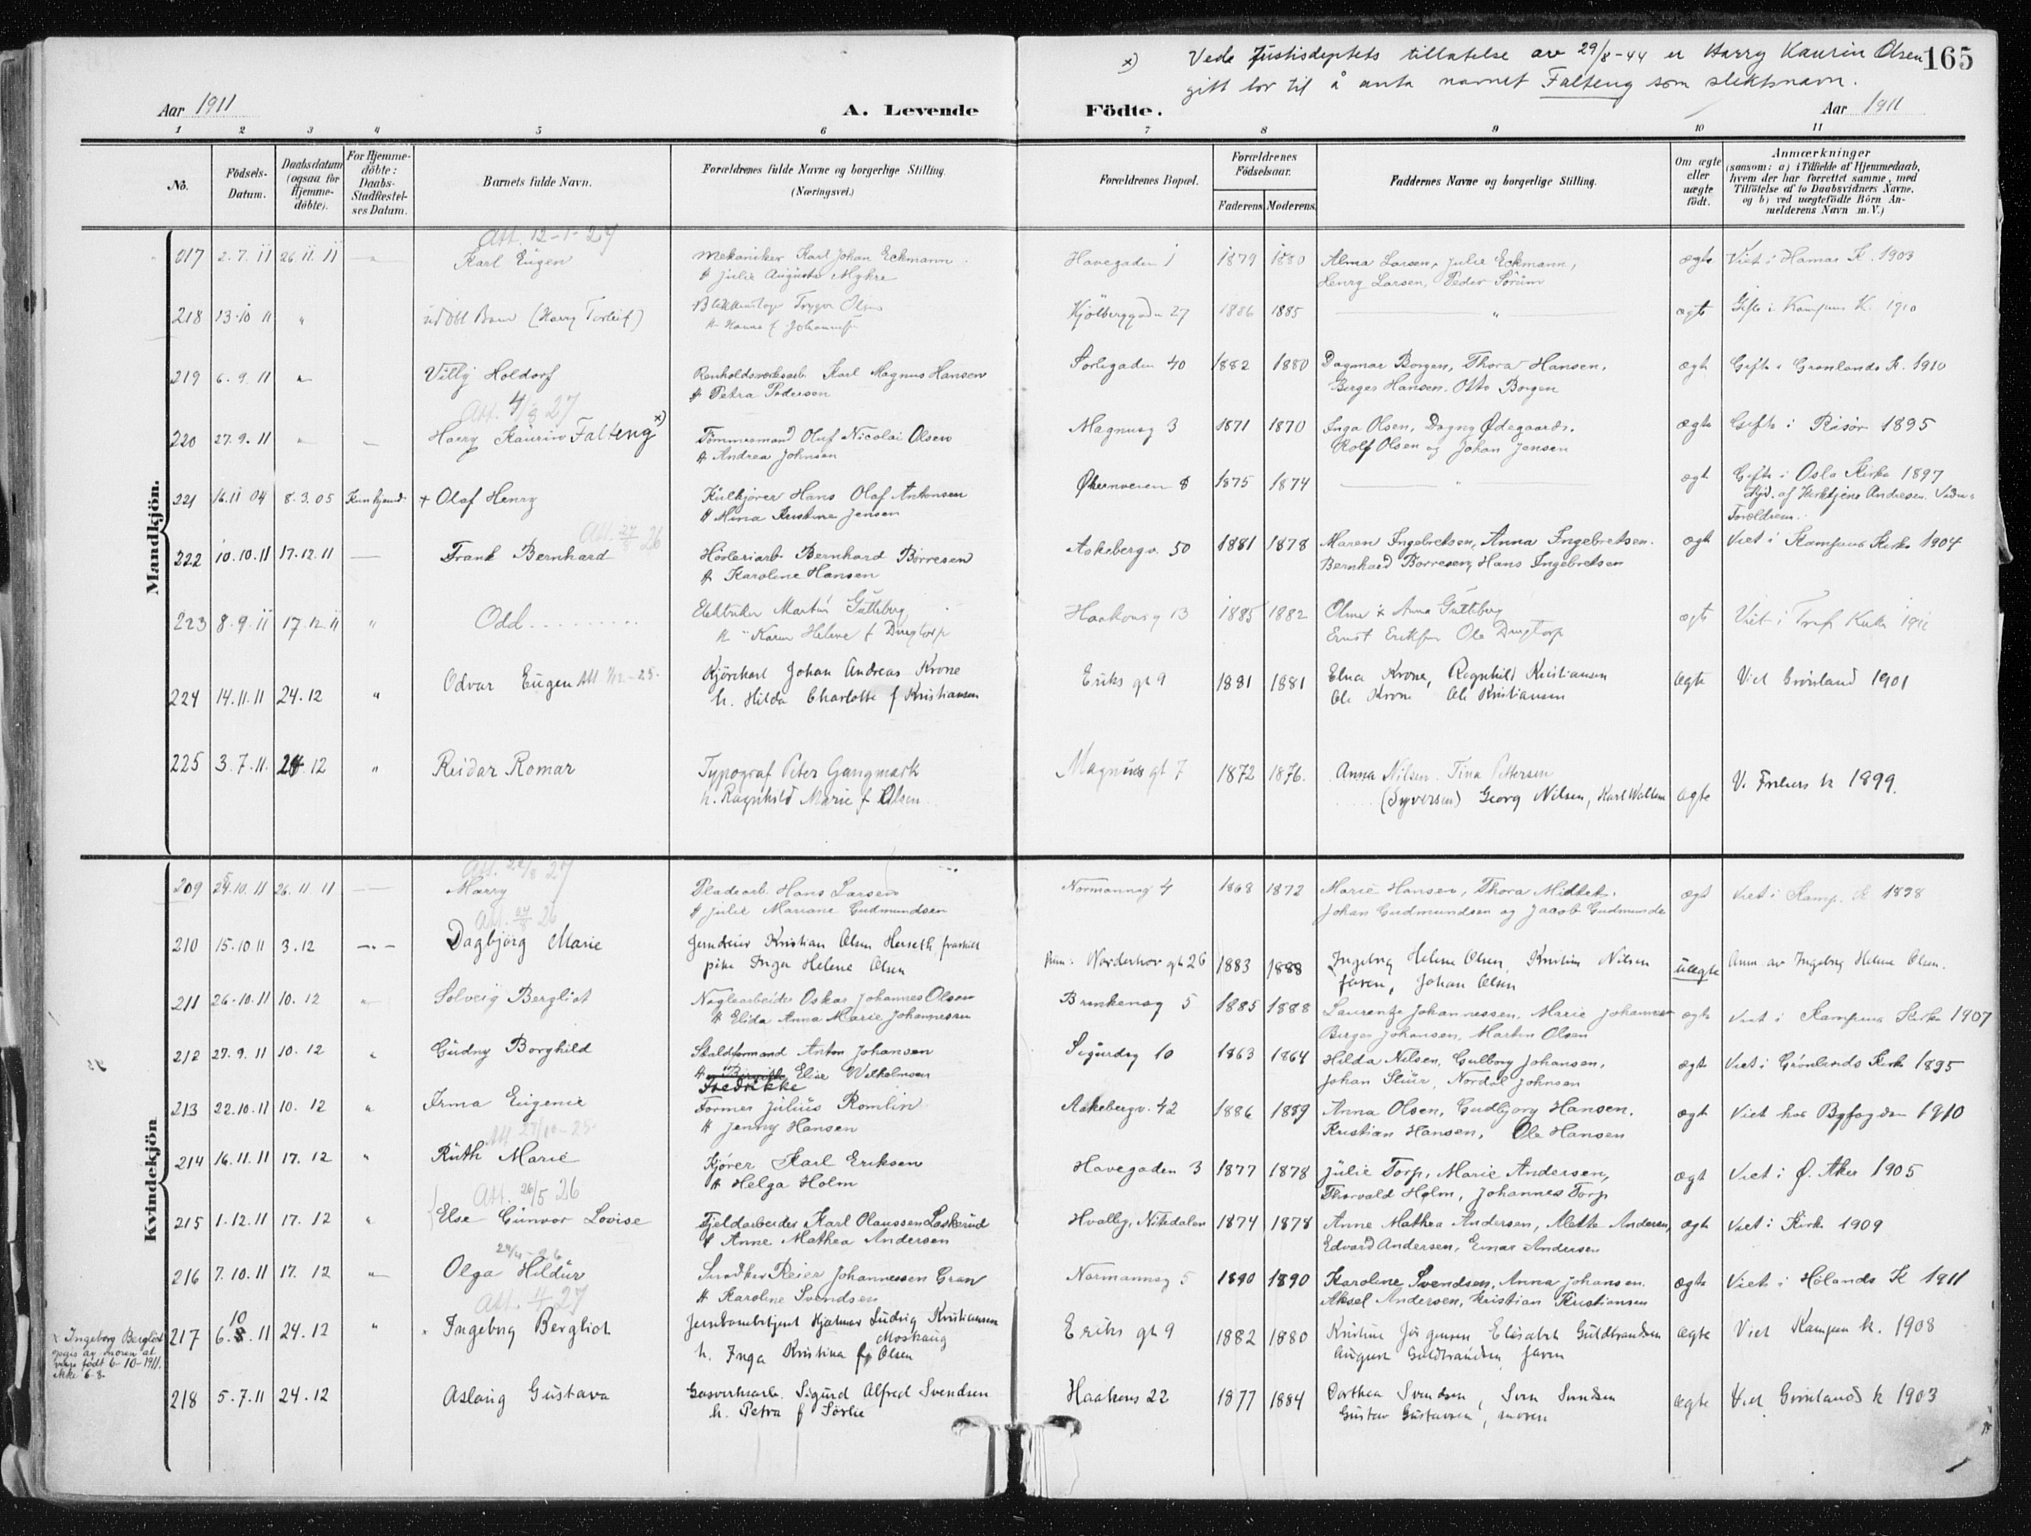 x) Vede Justisdeptets tillatelse av 29/8-44 er Harry Kaurin Olsen
gitt lov til å anta navnet Falteng som slektsnavn.
165
Aar 1911 A. Levende Födte. Aar 1911
1 2 3 4 5 6 7 8 9 10 11
No. Födsels-Datum. Daabsdatum (ogsaa for Hjemme-döbte). For Hjemme-döbte: Daabs-Stadfæstel-ses Datum. Barnets fulde Navn. Forældrenes fulde Navne og borgerlige Stilling. (Næringsvei.) Forældrenes Bopæl. Forældrenes Födselsaar. Faderens. Moderens. Faddernes Navne og borgerlige Stilling. Om ægte eller uægte födt. Anmærkninger (saasom: a) i Tilfælde af Hjemmedaab, hvem der har forrettet samme, med Tilföielse af to Daabsvidners Navne. og b) ved uægtefödte Börn An-melderens Navn m. V.)
Mandkjön.
Att. 12-1-27
217 2.7.11 26.11.11 Karl Eugen Mekaniker Karl Johan Eckmann Havegaden 1 1879 1880 Alma Larsen, Julie Eckmann, ægte Viet i Hamar K. 1903
H Julie Augusta Myhre Henry Larsen, Peder Sörum
218 13.10.11 " udöbt Barn (Harry Torleif) Olsen Kjölberggaden 27 1886 1885 " ægte Gifte i Kampens K. 1910
219 6.9.11 " Villy Holdorf Renholdsverksarb. Karl Magnus Hansen Sorligaden 40 1882 1880 Dagmar Borgen, Thora Hansen, ægte Gifte i Grønlands K. 1910
H Petra Pedersen Berger Hansen. Otto Borgen
Att. 4/8 27
220 27.9.11 " Harry Kaurin Falteng x) Tømmermand Oluf Nicolai Olsen Magnusg 3 1871 1870 Inga Olsen, Dagny Ødegaard. ægte Gifte i Risør 1895
H Andrea Johnsen Rolf Olsen og Johan Jensen
221 16.11.04 8.3.05 + Olaf Henry Kulkjører Hans Olaf Antonsen Økernveien 8 1875 1874 " ægt Gifte i Oslo Kirke 1897
H Mina Kristine Jensen Hjd. af Kirketjener Andresen. Vidne: Forældrene.
Att. 27/8 26
222 10.10.11 17.12.11 Frank Bernhard Høvleriarb. Bernhard Børresen Aakebergv. 50 1881 1878 Maren Ingebretsen, Anna Ingebretsen. ægt Viet i Kampens Kirke 1904
H Karoline Hansen Bernhard Børresen, Hans Ingebretsen
223 8.9.11 17.12.11 " Odd Martin Gutteberg Haakonsg 13 1885 1882 Anna Gutteberg ægte Viet i 1911
Karen Helene f Drugtorp Ole Drugtorp
224 14.11.11 24.12 " Odvar Eugen Att Kjörekarl Johan Andreas Krone Eriks gt 9 1881 1881 Elna Krone, Ragnhild Kristiansen Ægte Viet Grönland 1901
h. Hilda Charlotte f Kristiansen Ole Krone Ole Kristiansen
225 3.7.11. 24.12 " Reidar Romar Typograf Peter Gangmark Magnus gt 7 1872 1876. Anna Nilsen. Tina Pettersen
h. Ragnhild Marie f Olsen (Syversen) Georg Nilsen, Karl Wallem Ægte V. 1899.
Kvindekjön
Att. 22/8 27
209 24.10.11 26.11.11 Marry Pladearb. Hans Larsen Normannsg 4 1868 1872 Marie Hansen, Thora Midtet. ægt Viet i Kamp. K 1898
H Julie Mariane Gudmundsen Johan Gudmundsen og Jacob Gudmundse
Att. 27/8 26
210 15.10.11 3.12 Dagbjörg Marie Jerndreier Kristian Olsen Herseth fraskilt Norderhov gt 26 1883 1888 Ingeborg Helene Olsen, Kristine Nilsen uægte Anm av Ingeborg Helene Olsen.
pike Inga Helene Olsen faren, Johan Olsen
211 26.10.11 10.12 " Solveig Bergliot Naglearbeider Oskar Johannes Olsen Brinkensg 5 1885 1888 Laurentze Johannessen, Marie Johannes ægt Viet i Kampens Kirke 1907
H Elida Anna Marie Johannesen Birger Johansen, Martin Olsen
212 27.9.11 10.12 " Gudny Borghild Staldformand Anton Johansen Sigurdsg 10 1863 1864 Hilda Nilsen, Gulborg Johansen, ægt Viet i Grönlands Kirke 1895
H Elise Wilhelmsen Fredrikke Johan Sliur, Nordal Johnsen
213 22.10.11 10.12 " Irma Eugenie Former Julius Romlin Aakebergv. 42 1886 1889 Anna Olsen, Gudbjorg Hansen, ægt Viet hos Byfogden 1910
H Jenny Hansen Kristian Hansen, Ole Hansen
Att 27/10-25.
214 16.11.11 17.12 " Ruth Marie Kjører Karl Eriksen Havegaden 3 1877 1878 Julie Torp, Marie Andersen, ægt Viet i Ø. Aker 1905
H Helga Holm Thorvald Holm, Johannes Torp
Att. 26/5 26
215 1.12.11 17.12 " Else Gunvor Lovise Fjeldarbeider Karl Olaussen Laskerud Hvalby, Nitedalen 1874 1878 Anne Mathea Andersen, Mette Andersen, ægt Viet i Kirke 1909
f Anne Mathea Andersen Edvard Andersen, Einar Andersen
29/4-26
216 7.10.11 17.12 Olga Hildur Snedker Reier Johannessen Gran Normannsg 5 1890 1890 Karoline Svendsen, Anna Johansen ægte Viet i Hölands K 1911
H Karoline Svendsen Aksel Andersen, Kristian Kristiansen
Att. 27
217 6.10.11 24.12 " Ingeborg Bergliot Hjalmar Ludvig Kristiansen Moskaug Eriks gt 9 1882 1880 Kristine Jörgensen, Elisabet Guldbrandsen Ægte Viet Kampen k. 1908
h. Inga Kristina f Olsen August Guldbrandsen, faren
x Ingeborg Bergliot
opgis av moren at
være født 6-10-1911.
ikke 6-8.
218 5.7.11 24.12 Aslaug Gustava Gasverksarb. Sigurd Alfred Svendsen Haakons 22 1877 1884 Dorthea Svendsen, Sven Svendsen Ægte Viet Grönlands k 1903
h. Petra f Sörlie Gustav Gustavsen, moren